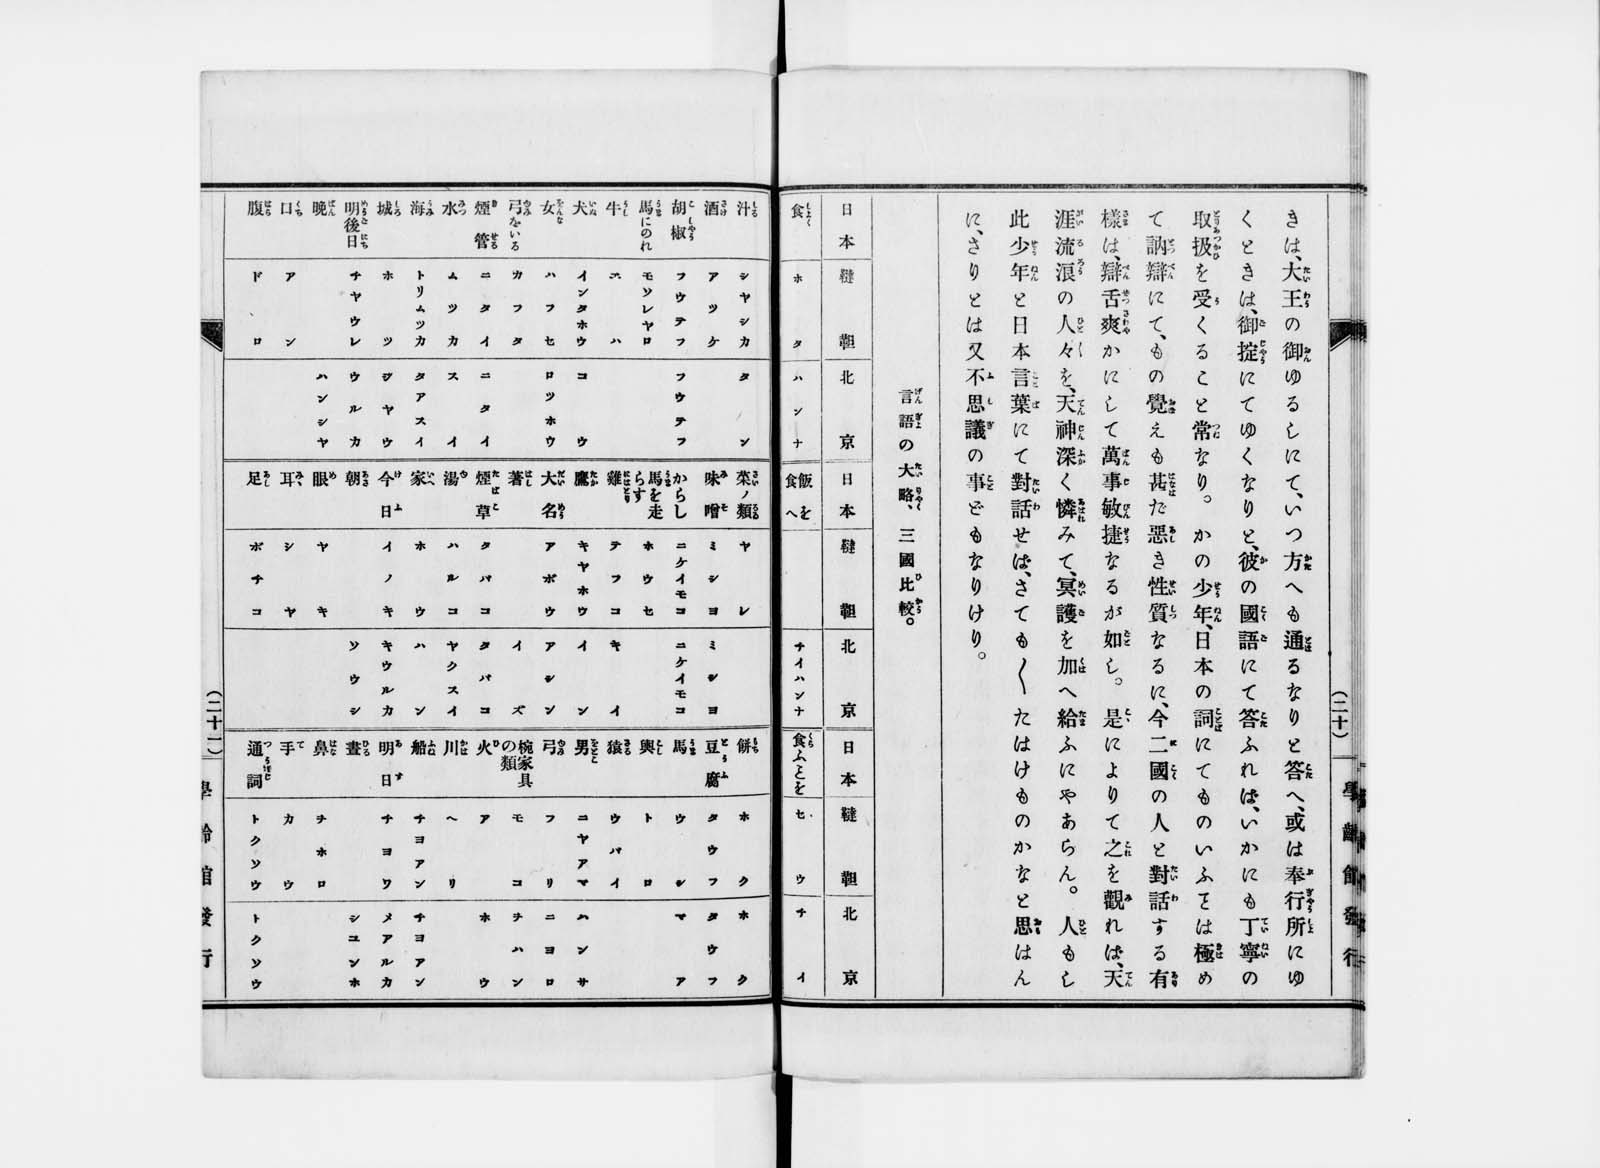 きは、大王の御ゆるしにて、いつ方へも通るなりと答へ、或は奉行所にゆ
くときは、御掟にてゆくなりと、彼の國語にて答ふれば、いかにも丁寧の
取扱を受くること常なり。かの少年、日本の詞にてものいふをは極め
て訥辯にて、もの覺えも甚だ惡き性質なるに、今二國の人と對話する有
樣は、辯舌爽かにして萬事敏捷なるが如し。是によりて之を觀れば、天
涯流浪の人々を、天神深く憐みて、冥護を加へ給ふにやあらん。人もし
此少年と日本言葉にて對話せば、さても〱たはけものかなと思はん
に、さりとは又不思議の事どもなりけり。
言語の大略、三國比較。
日本 韃靼 北京 日本 韃靼 北京 日本 韃靼 北京
食 ホタ ハンナ 飯を食へ チイハンナ 食ふことを セウ チイ
汁 シヤシカ タン 菜ノ類 ヤレ 餅 ホク ホク
酒 アツケ 味噌 ミシヨ ミシヨ 豆腐 タウフ タウフ
胡椒 フウテフ フウテフ からし ニケイモコ ニケイモコ 馬 ウシ マア
馬にのれ モソレヤロ 馬を走らす ホウセ 輿 トロ
牛 ニハ 雞 テフコ キイ 猿 ウバイ
犬 インタホウ コウ 鷹 キヤホウ イン 男 ニヤアマ ハンサ
女 ハフセ ロツホウ 大名 アボウ アシン 弓 フリ ニヨロ
弓をいる カフタ 著 イズ 椀家具の類 モコ チハン
煙管 ニタイ ニタイ 煙草 タバコ タバコ 火 ア ホウ
水 ムツカ スイ 湯 ハルコ ヤクスイ 川 ヘリ
海 トリムツカ タアスイ 家 ホウ ハン 船 チヨアン チヨアン
城 ホツ ジヤウ 今日 イノキ キウルカ 明日 チヨワ メアルカ
明後日 チヤウレ ウルカ 朝 ソウシ 晝 シユンホ
晩 ハンシヤ 眼 ヤキ 鼻 チホロ
口 アン 耳 シヤ 手 カウ
腹 ドロ 足 ボチコ 通詞 トクソウ トクソウ
(二十)
(二十一)
學齡館發行